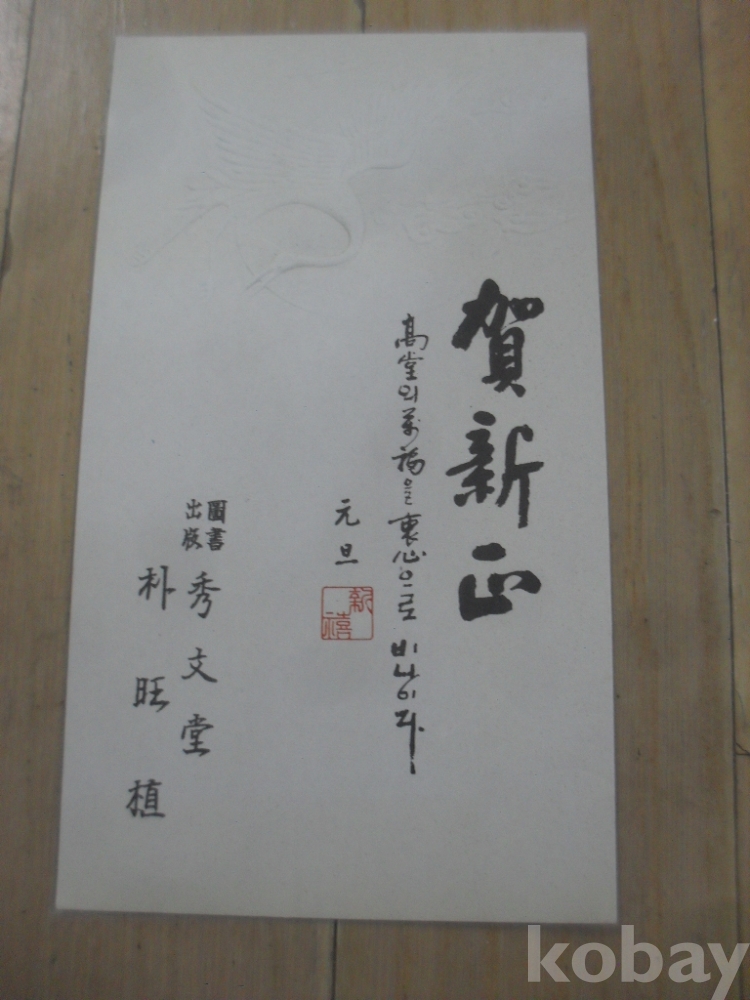 賀新正
高堂의 萬福을 衷心으로 비나이다
元旦
新禧
圖書
出版
秀文堂
朴旺植
kobay